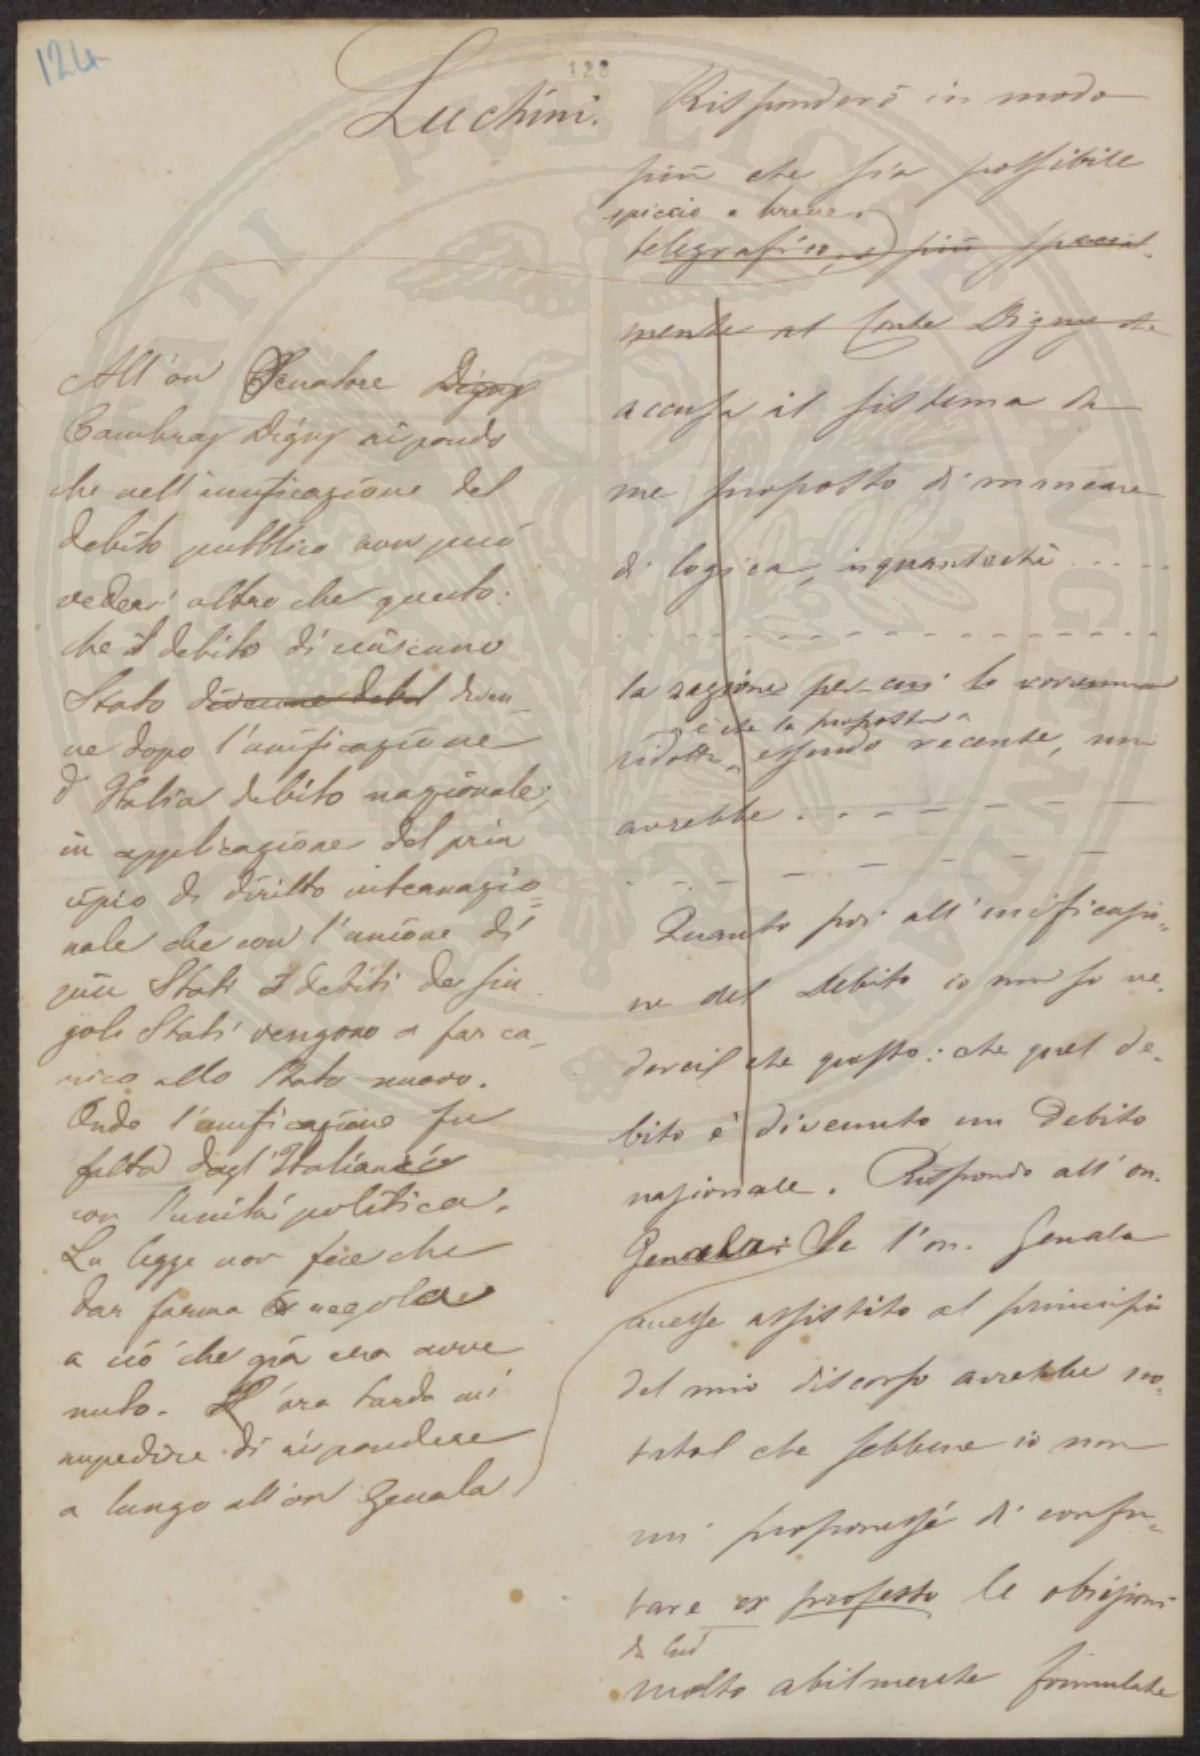 124
128
Luchini. Risponderò in modo
più che sia possibile
spiccio e breve.
telegrafico, e più special-
mente al Conte Digny che
accusa il sistema da
me proposto di mancare
di logica, inquantochè . . . .
la ragione per cui lo vorremmo
è che la proposta
ridotto, essendo recente, non
avrebbe . . .
Quanto poi all'unificazio-
ne del Debito io non so ve-
derci che questo: che quel de-
bito è divenuto un Debito
nazionale. Rispondo all'on.
Genala: Se l'on. Genala
All'on Senatore Digny
Cambray Digny rispondo
che nell'unificazione del
debito pubblico non può
vedersi altro che questo:
che il debito di ciascuno
Stato divenne debit diven-
ne dopo l'unificazione
d'Italia debito nazionale;
in applicazione del prin
cipio di diritto internazio=
nale che con l'unione di
più Stati i debiti dei sin
goli Stati vengono a far ca-
rico allo Stato nuovo.
Onde l'unificazione fu
fatta dagl'Italiani
con l'unità politica.
La legge non fece che
dar forma e regola
a ciò che già era avve
nuto. L'ora tarda mi
impedisce di rispondere
a lungo all'on Genala
avesse assistito al principio
del mio discorso avrebbe no-
tato che sebbene io non
mi proponessi di confu-
tare ex professo le obiezioni
da lui
molto abilmente formulate